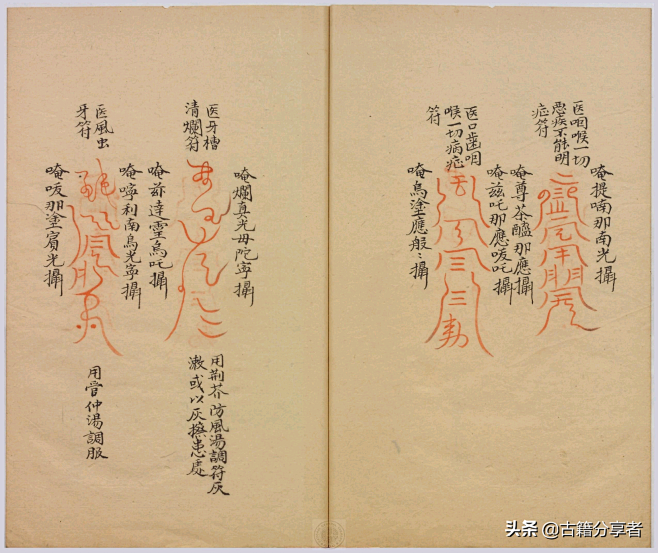 医咽喉一切
恶疾不能明
症符
唵提喃那南光攝
唵尊茶醯那應攝
医口齒咽
喉一切病症
符
唵兹吒那應唆吒攝
唵烏塗應般々攝
医牙槽
清爛符
唵爛真光毋陀寧攝
唵茲達霊烏吒攝
用荆芥防風湯調符灰
漱或以灰擦患處
医風虫
牙符
唵寧利南烏光寧攝
唵唆那塗賓光攝
用管仲湯調服
头条 @古籍分享者